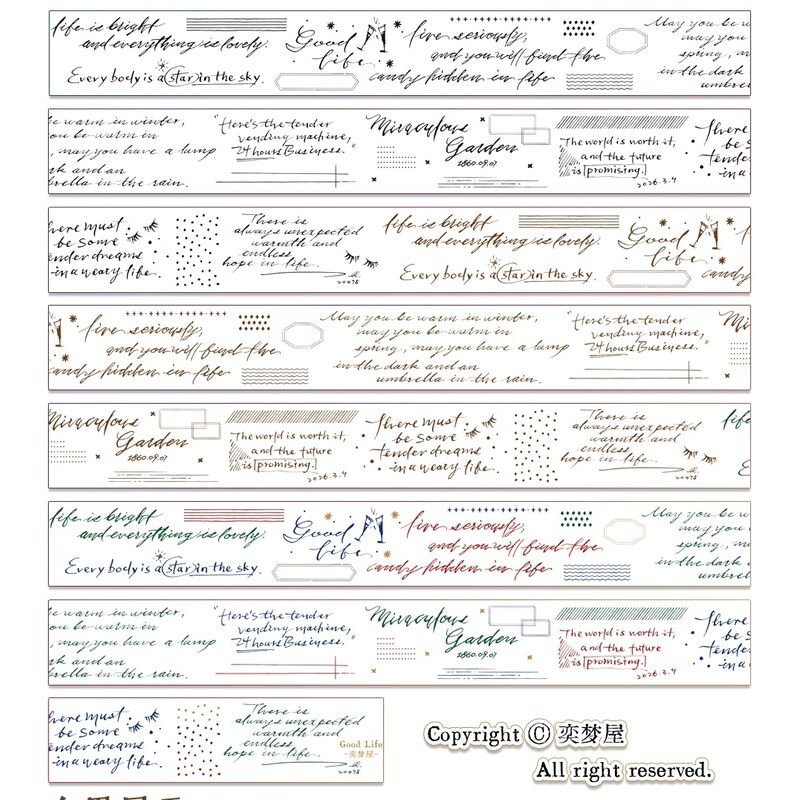 life is bright
and everything is lovely.
Every body is a star in the sky.
Good
life.
live seriously,
and you will find the
candy hidden in life
May you be w
may you
spring, m
in the dark
umbre
be warm in winter,
ou be warm in
, may you have a lamp
rk and an
brella in the rain.
"Here's the tender
vending machine,
24 hours Business."
Miraculous
Garden
1860.09.01
The world is worth it,
and the future
is promising.
2026.3.4
There
be s
tender
in a
here must
be some
ender dreams
in a weary life.
There is
always unexpected
warmth and
endless
hope in life.
20475
life is bright
and everything is lovely.
Every body is a star in the sky.
Good
life.
candy
live seriously,
and you will find the
andy hidden in life
May you be warm in winter,
may you be warm in
spring, may you have a lamp
in the dark and an
umbrella in the rain.
"Here's the tender
vending machine,
24 hours Business."
Mi
Miraculous
Garden
1860.09.01
The world is worth it,
and the future
is promising.
2026.3.4
There must
be some
tender dreams
in a weary life.
There is
always unexpected
warmth and
endless
hope in life.
20475
life
life is bright
and everything is lovely.
Every body is a star in the sky.
Good
life.
live seriously,
and you will find the
candy hidden in life
May you be w
may you
spring, m
in the dark
umbre
be warm in winter,
ou be warm in
, may you have a lamp
rk and an
brella in the rain.
"Here's the tender
vending machine,
24 hours Business."
Miraculous
Garden
1860.09.01
The world is worth it,
and the future
is promising.
2026.3.4
There
be s
tender
in a
here must
be some
ender dreams
in a weary life.
There is
always unexpected
warmth and
endless
hope in life.
20475
Good Life
-奕梦屋-
Copyright © 奕梦屋
All right reserved.